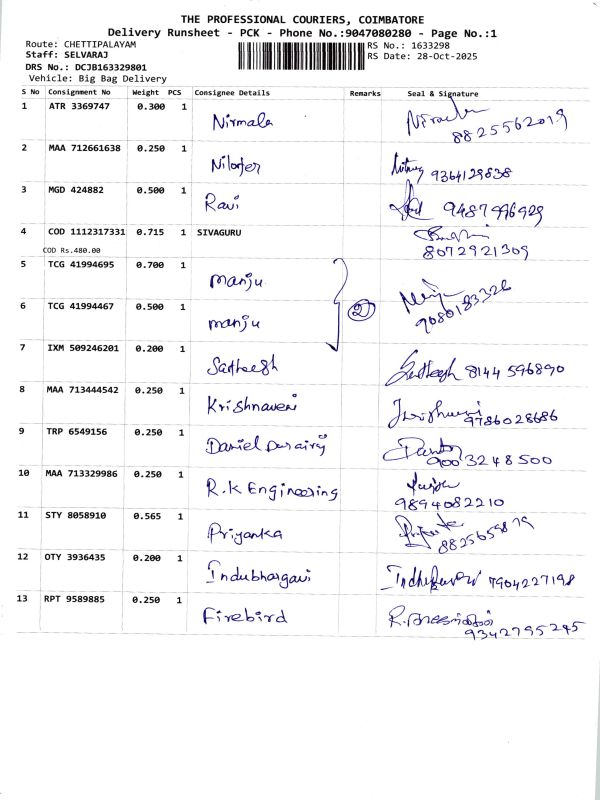 THE PROFESSIONAL COURIERS, COIMBATORE
Delivery Runsheet - PCK - Phone No.:9047080280 - Page No.:1
Route: CHETTIPALAYAM
RS No.: 1633298
Staff: SELVARAJ
RS Date: 28-Oct-2025
DRS No.: DCJB163329801
Vehicle: Big Bag Delivery
S No Consignment No Weight PCS Consignee Details Remarks Seal & Signature
1 ATR 3369747 0.300 1 Nirmala
8825562019
2 MAA 712661638 0.250 1 Nilofer 9364129838
3 MGD 424882 0.500 1 Ravi 9487996929
4 COD 1112317331 0.715 1 SIVAGURU
COD Rs.480.00 8072921309
5 TCG 41994695 0.700 1 manju
2
6 TCG 41994467 0.500 1 manju 9080183326
7 IXM 509246201 0.200 1 Satheesh Satheesh 8144596890
8 MAA 713444542 0.250 1 Krishnaveni
9786028686
9 TRP 6549156 0.250 1 Daniel Durairaj
9003248500
10 MAA 713329986 0.250 1 R.K Engineering
9894082210
11 STY 8058910 0.565 1 Priyanka
8825659879
12 OTY 3936435 0.200 1 Indubhargavi 7904227198
13 RPT 9589885 0.250 1 Firebird
9342795245